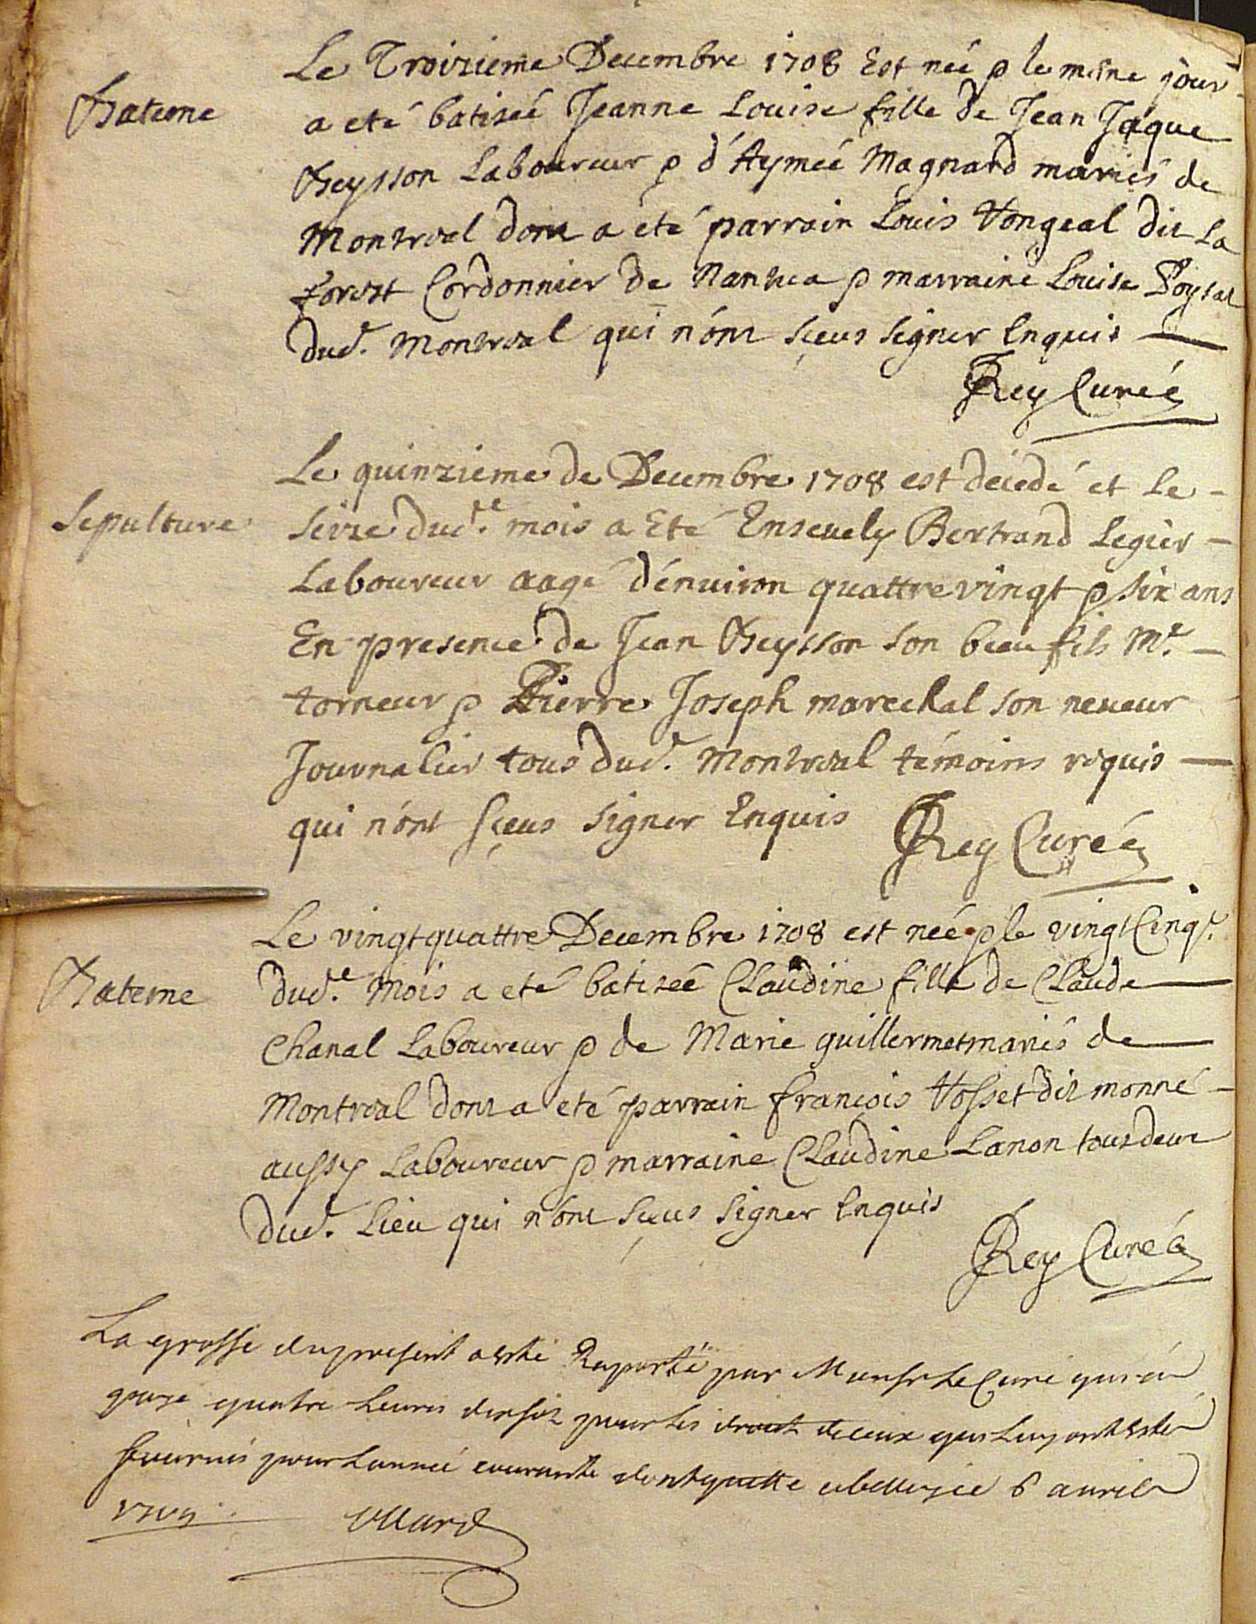 Bateme
Le Troizieme Decembre 1708 Est neé & le mesne jour
a eté batizeé Jeanne Louise fille de Jean Jaque
Beysson Laboureur & d'Aymeé Magnard mariés de
Montreal dont a eté parrain Louis Vongeal dit La
forest Cordonnier de Nantua & marraine Louise Poysat
dud. Montreal qui n'ont sçeus signer Enquis
Rey Curé
Sepulture
Le quinzieme de Decembre 1708 est décedé et le
seize dud.e mois a Eté Ensevely Bertrand Legier
Laboureur aagé d'environ quattrevingt & six ans
En presence de Jean Beysson son beau fils M.e
torneur & Pierre Joseph marechal son neveur
Journalier tous dud. Montreal témoins requis
qui n'ont sçeus signer Enquis
Rey Curé
Bateme
Le vingtquattre Decembre 1708 est neé & le vingtCinq.e
dud.e Mois a eté batizeé Claudine fille de Claude
Chanal Laboureur & de Marie guillermet mariés de
Montreal dont a eté parrain françois Vosset dit monné
aussy Laboureur & marraine Claudine Lanon tous deux
dud. Lieu qui n'ont sçeus signer Enquis
Rey Curé
La grosse du present a esté Raporté par Monsr le Curé qui a
payé quatre Leures dixsix pour les droit de ceux qui luy ont esté
fournis pour Lannée courante dont quitte a belley ce 6 avril
1709